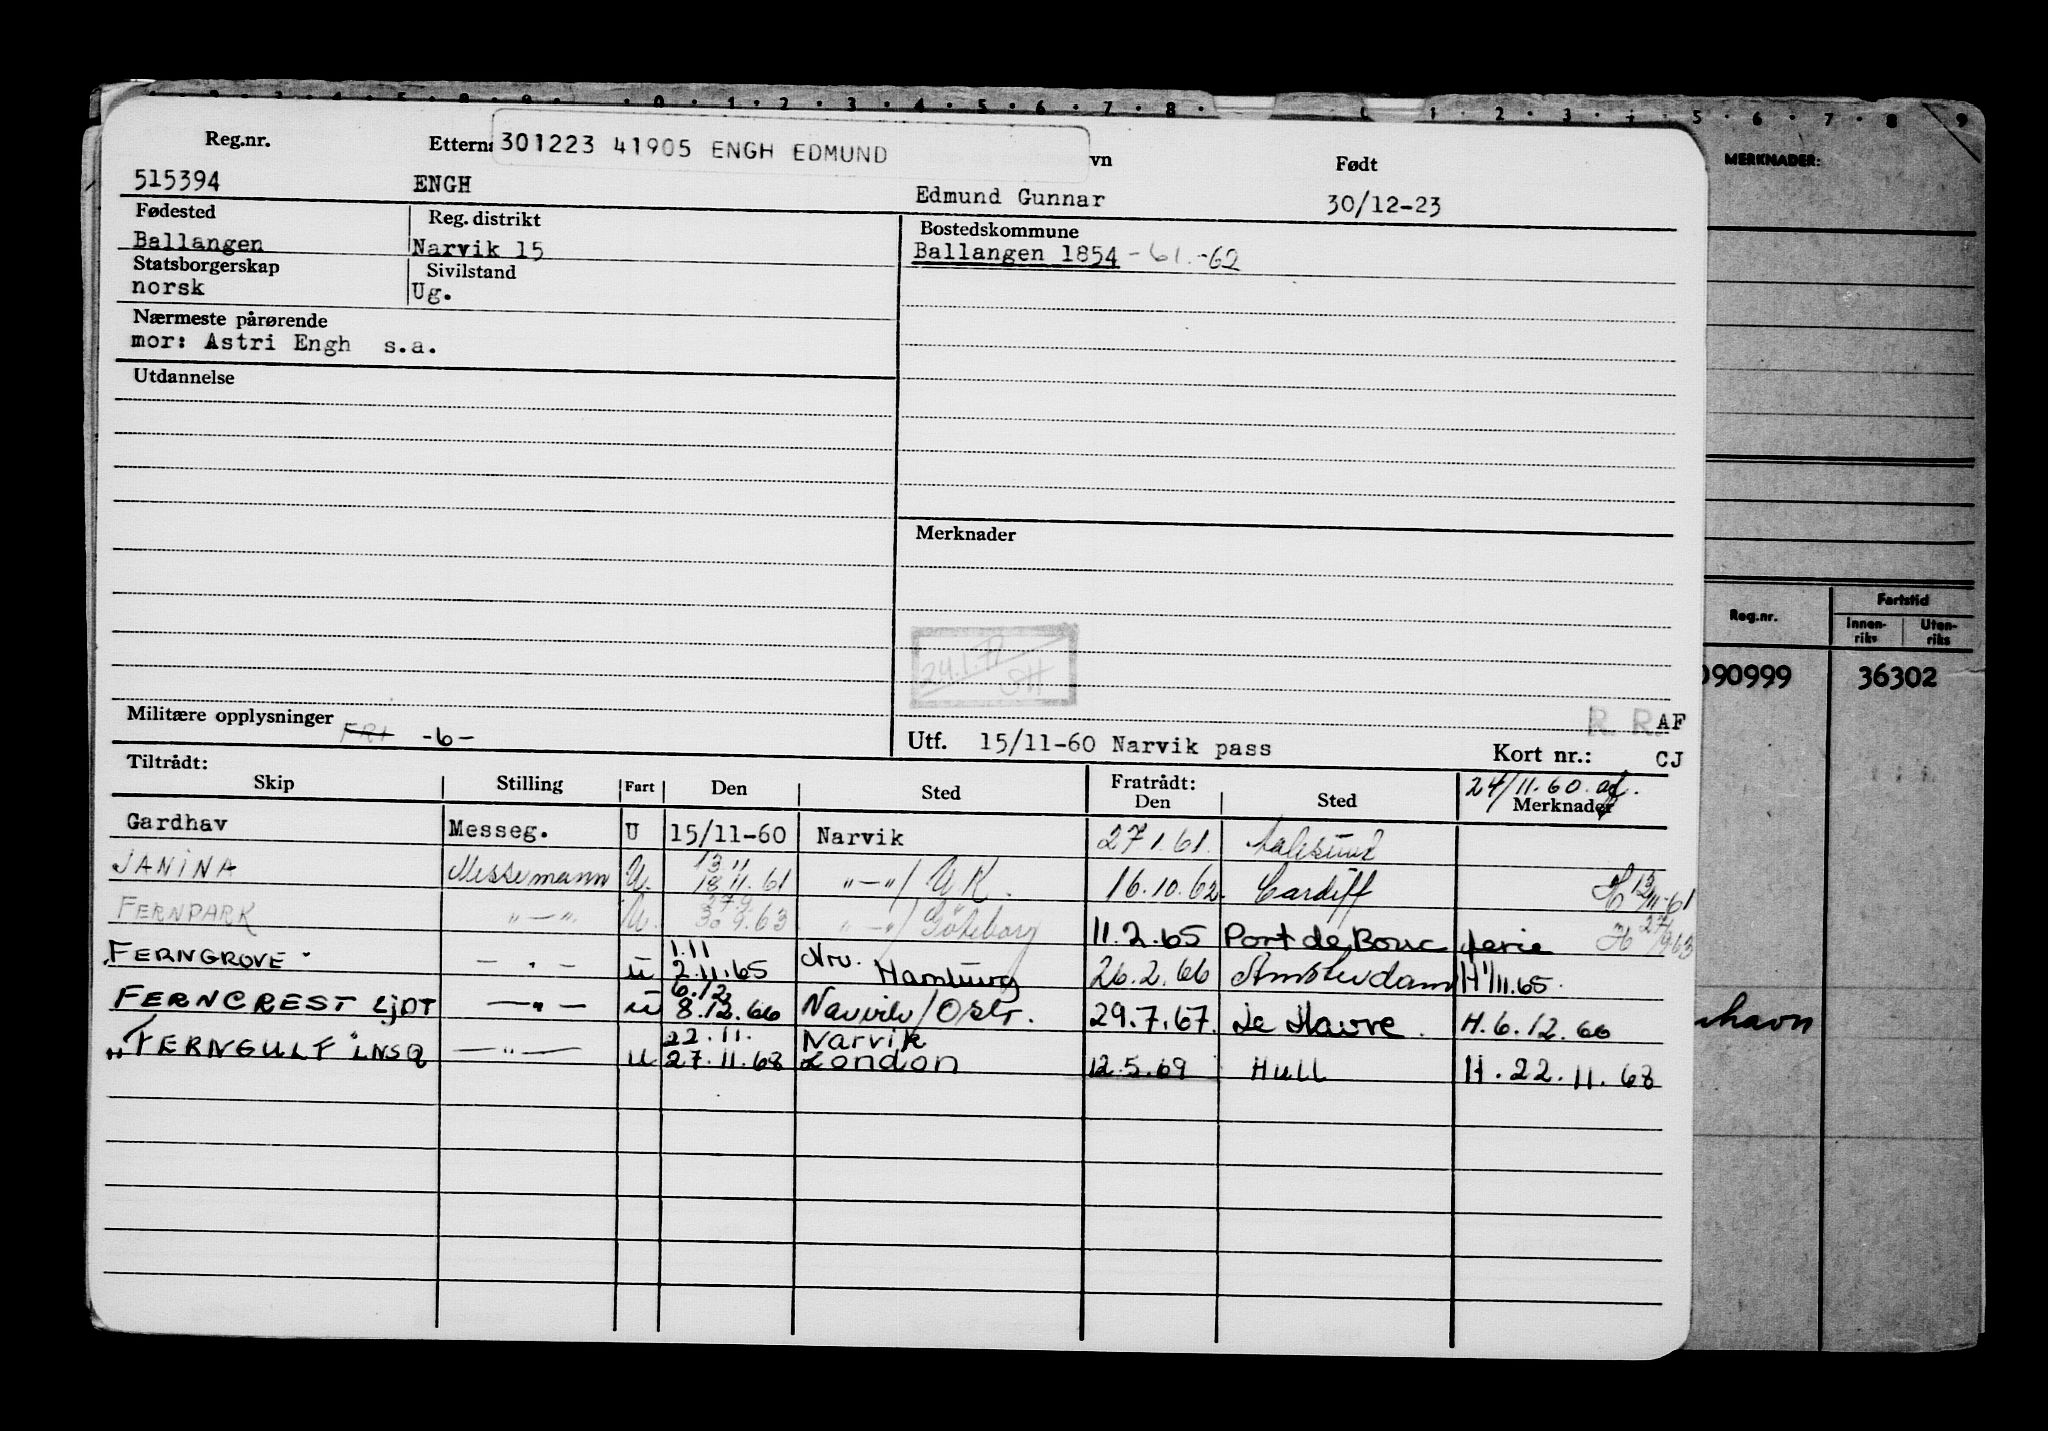 MERKNADER:
301223 41905 ENGH EDMUND
Reg.nr. Etterna vn Født
515394 ENGH Edmund Gunnar 30/12-23
Fødested Reg. distrikt Bostedskommune
Ballangen Narvik 15 Ballangen 1854 - 61. -62
Statsborgerskap Sivilstand
norsk Ug.
Nærmeste pårørende
mor: Astri Engh s.a.
Utdannelse
Merknader
24.1.71
Reg.nr. Fartstid
Innen-riks Uten-riks
090999 36302
Militære opplysninger FRI -6-
R R AF
Utf. 15/11-60 Narvik pass Kort nr.: CJ
Tiltrådt: Fratrådt: 24/11.60.
Skip Stilling Fart Den Sted Den Sted Merknader
Gardhav Messeg. U 15/11-60 Narvik 27.1.61. Aalesund
JANINA Messemann U. 13.11 18.11.61 "-"/ UK. 16.10.62. Cardiff H 13/11-61
FERNPARK "-" U. 27.9 30.9.63 "-"/ Göteborg 11.2.65 Port de Bouc ferie H 27/9.63
FERNGROVE - " - u 1.11 2.11.65 Nrv. Hamburg 26.2.66 Amsterdam H 1/11.65.
FERNCREST LJDT -"- u 6.12 8.12.66 Narvik/Oslo. 29.7.67. Le Havre. H. 6.12.66
"FERNGULF" LNSQ -"- u 22.11. 27.11.68 Narvik London 12.5.69 Hull H. 22.11.68
havn